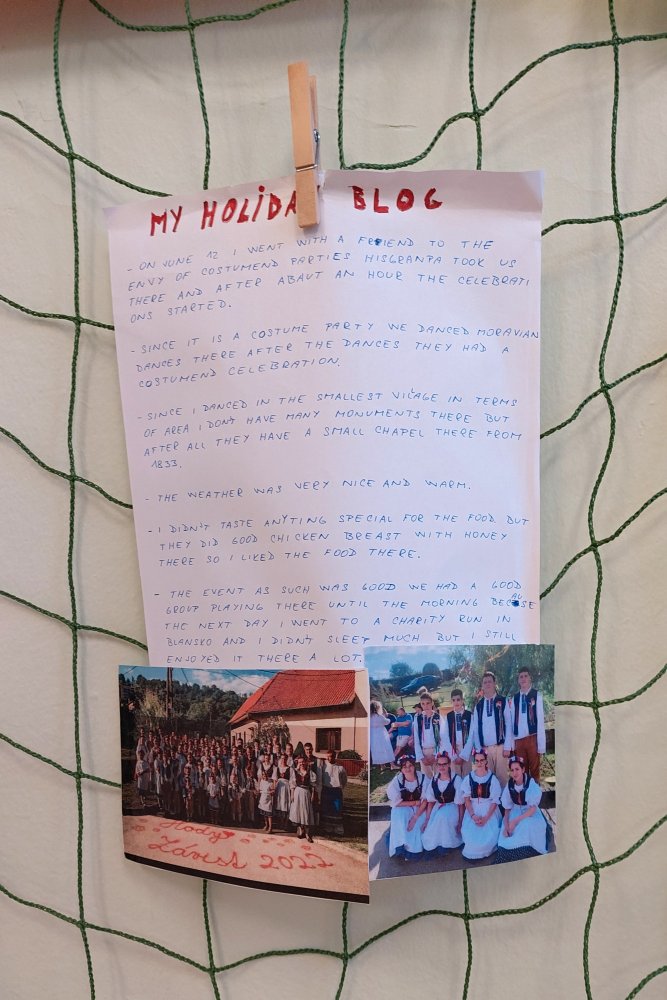 MY HOLIDAY BLOG
- ON JUNE 12 I WENT WITH A FRIEND TO THE
ENVY OF COSTUMEND PARTIES HISGRANPA TOOK US
THERE AND AFTER ABAUT AN HOUR THE CELEBRATI
ONS STARTED.
- SINCE IT IS A COSTUME PARTY WE DANCED MORAVIAN
DANCES THERE AFTER THE DANCES THEY HAD A
COSTUMEND CELEBRATION.
- SINCE I DANCED IN THE SMALLEST VILAGE IN TERMS
OF AREA I DON'T HAVE MANY MONUMENTS THERE BUT
AFTER ALL THEY HAVE A SMALL CHAPEL THERE FROM
1833.
- THE WEATHER WAS VERY NICE AND WARM.
- I DIDN'T TASTE ANYTING SPECIAL FOR THE FOOD BUT
THEY DID GOOD CHICKEN BREAST WITH HONEY
THERE SO I LIKED THE FOOD THERE.
- THE EVENT AS SUCH WAS GOOD WE HAD A GOOD
GROUP PLAYING THERE UNTIL THE MORNING BECAUSE
THE NEXT DAY I WENT TO A CHARITY RUN IN
BLANSKO AND I DIDN'T SLEEP MUCH BUT I STILL
ENJOYED IT THERE A LOT.
Hody
Závist 2022